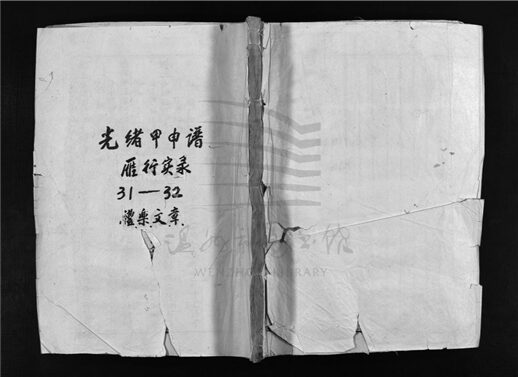 光绪甲申谱
雁行实录
31—32
礼乐文章
温州市图书馆
WENZHOU LIBRARY